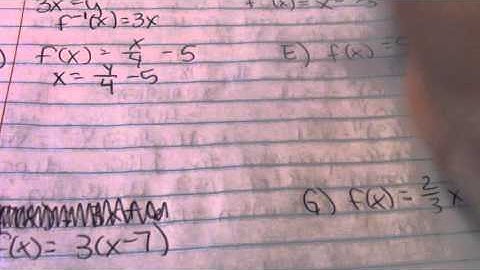 3x = y
f⁻¹(x) = 3x
f(x) = x/4 - 5
x = y/4 - 5
E) f(x) =
G) f(x) = 2/3 x
f(x) = 3(x-7)